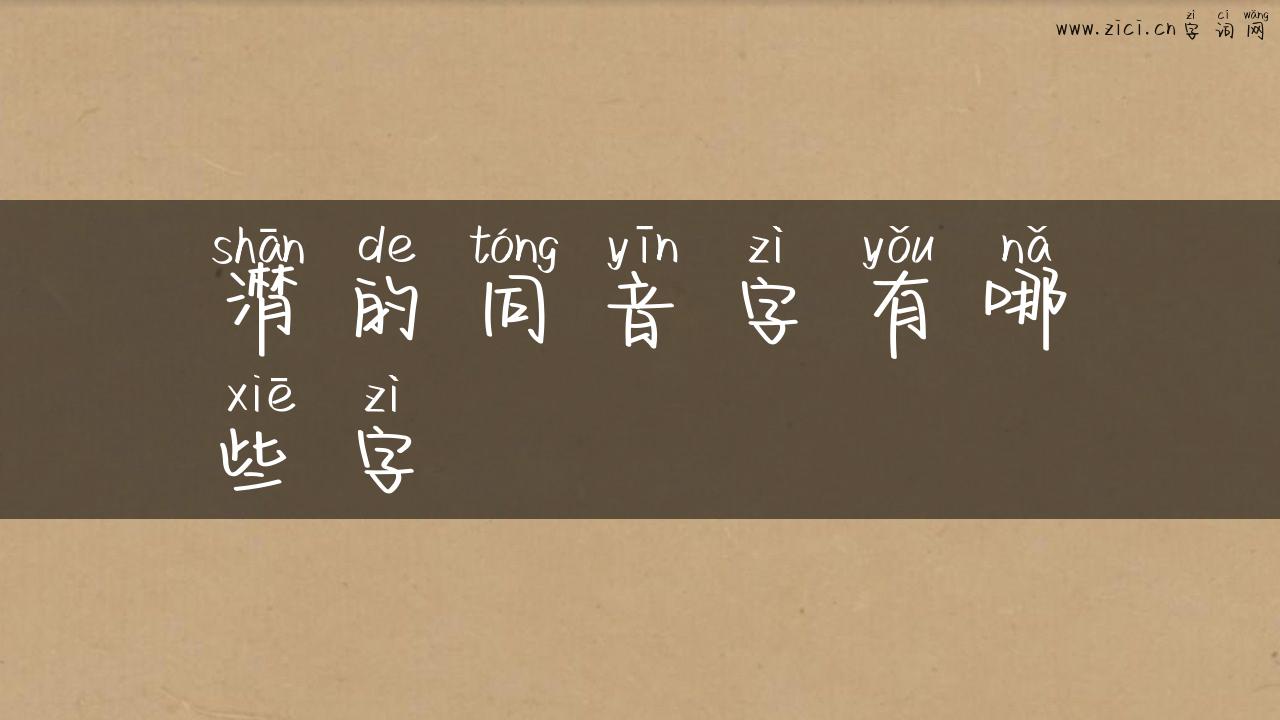 www.zici.cn 字词网
zì cí wǎng
shān de tóng yīn zì yǒu nǎ
潸的同音字有哪
xiē zì
些字